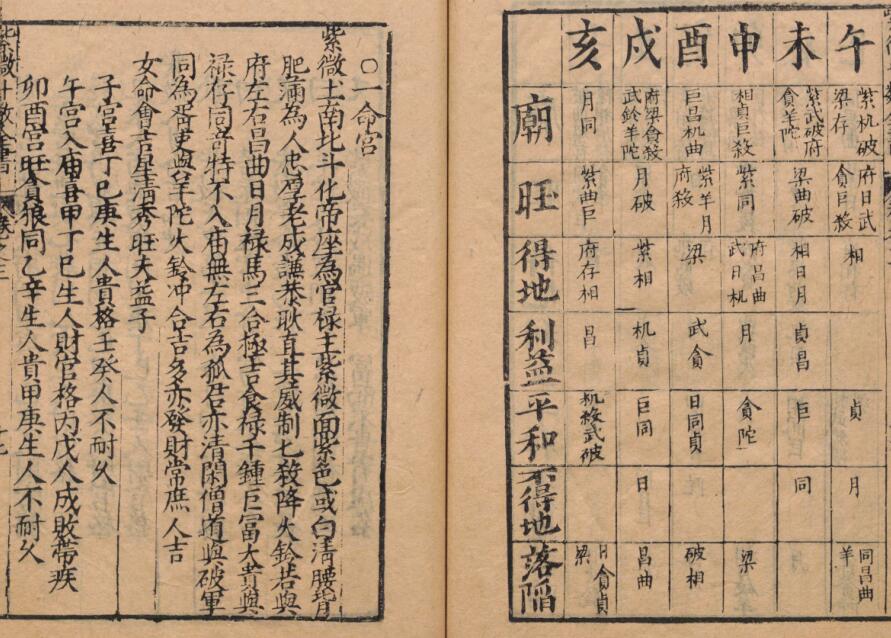 午
紫机破
梁存
府日武
貪巨殺
相
貞
月
同昌曲
羊
未
紫武破府
貪羊陀
梁曲破
相日月
貞昌
巨
同
申
相貞巨殺
紫同
府昌曲
武日机
月
貪陀
梁
酉
巨昌机曲
紫羊月
府殺
梁
武貪
日同貞
破相
戌
府梁貪殺
武鈴羊陀
月破
紫相
机貞
巨同
日
昌曲
亥
月同
紫曲巨
府存相
昌
机殺武破
日貪貞
梁
廟
旺
得地
利益
平和
不得地
落陷
○一命宮
紫微土南北斗化帝座為官禄主紫微面紫色或白清腰背
肥滿為人忠厚老成謙恭耿直其威制七殺降火鈴若與
府左右昌曲日月禄馬三合極吉食禄千鍾巨富大貴與
禄存同奇特不入廟無左右為孤君亦清閑僧道與破軍
同為胥吏與羊陀火鈴冲合吉多亦發財常庶人吉
女命會吉星清秀旺夫益子
子宮吉丁巳庚生人貴格壬癸人不耐久
午宮入廟吉甲丁巳生人財官格丙戊人成敗帶疾
卯酉宮旺貪狼同乙辛生人貴甲庚生人不耐久